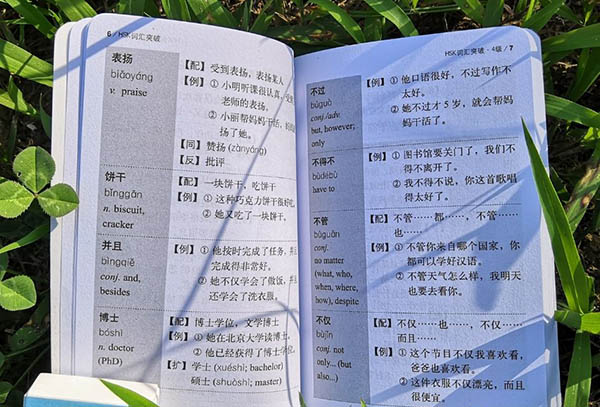 6 / HSK词汇突破
表扬
biǎoyáng
v. praise
【配】受到表扬，表扬某人
【例】① 小明听课很认真，受
老师的表扬。
② 小丽帮妈妈干活，妈妈
扬了她。
【同】赞扬 (zànyáng)
【反】批评
饼干
bǐnggān
n. biscuit,
cracker
【配】一块饼干，吃饼干
【例】① 这种巧克力饼干很好
② 她又吃了一块饼干。
并且
bìngqiě
conj. and,
besides
【例】① 他按时完成了任务，并
完成得非常好。
② 她不仅学会了做饭，
还学会了洗衣服。
博士
bóshì
n. doctor
(PhD)
【配】博士学位，文学博士
【例】① 她在北京大学读博
② 他已经获得了博士学
【扩】学士 (xuéshì; bachelor)
硕士 (shuòshì; master)
HSK词汇突破 · 4级 / 7
不过
búguò
conj./adv.
but, however;
only
【例】① 他口语很好，不过写作不
太好。
② 她不过才 5 岁，就会帮妈
妈干活了。
不得不
bùdébù
have to
【例】① 图书馆要关门了，我们不
得不离开了。
② 我不得不说，你这首歌唱
得太好了。
不管
bùguǎn
conj.
no matter
(what, who,
when, where,
how), despite
【配】不管……都……，不管……
也……
【例】① 不管你来自哪个国家，你
都可以学好汉语。
② 不管天气怎么样，我明天
也要去看你。
不仅
bùjǐn
conj. not
only... (but
also...)
【配】不仅……也……，不仅……
而且……
【例】① 这个节目不仅我喜欢看，
爸爸也喜欢看。
② 这件衣服不仅漂亮，而且
很便宜。